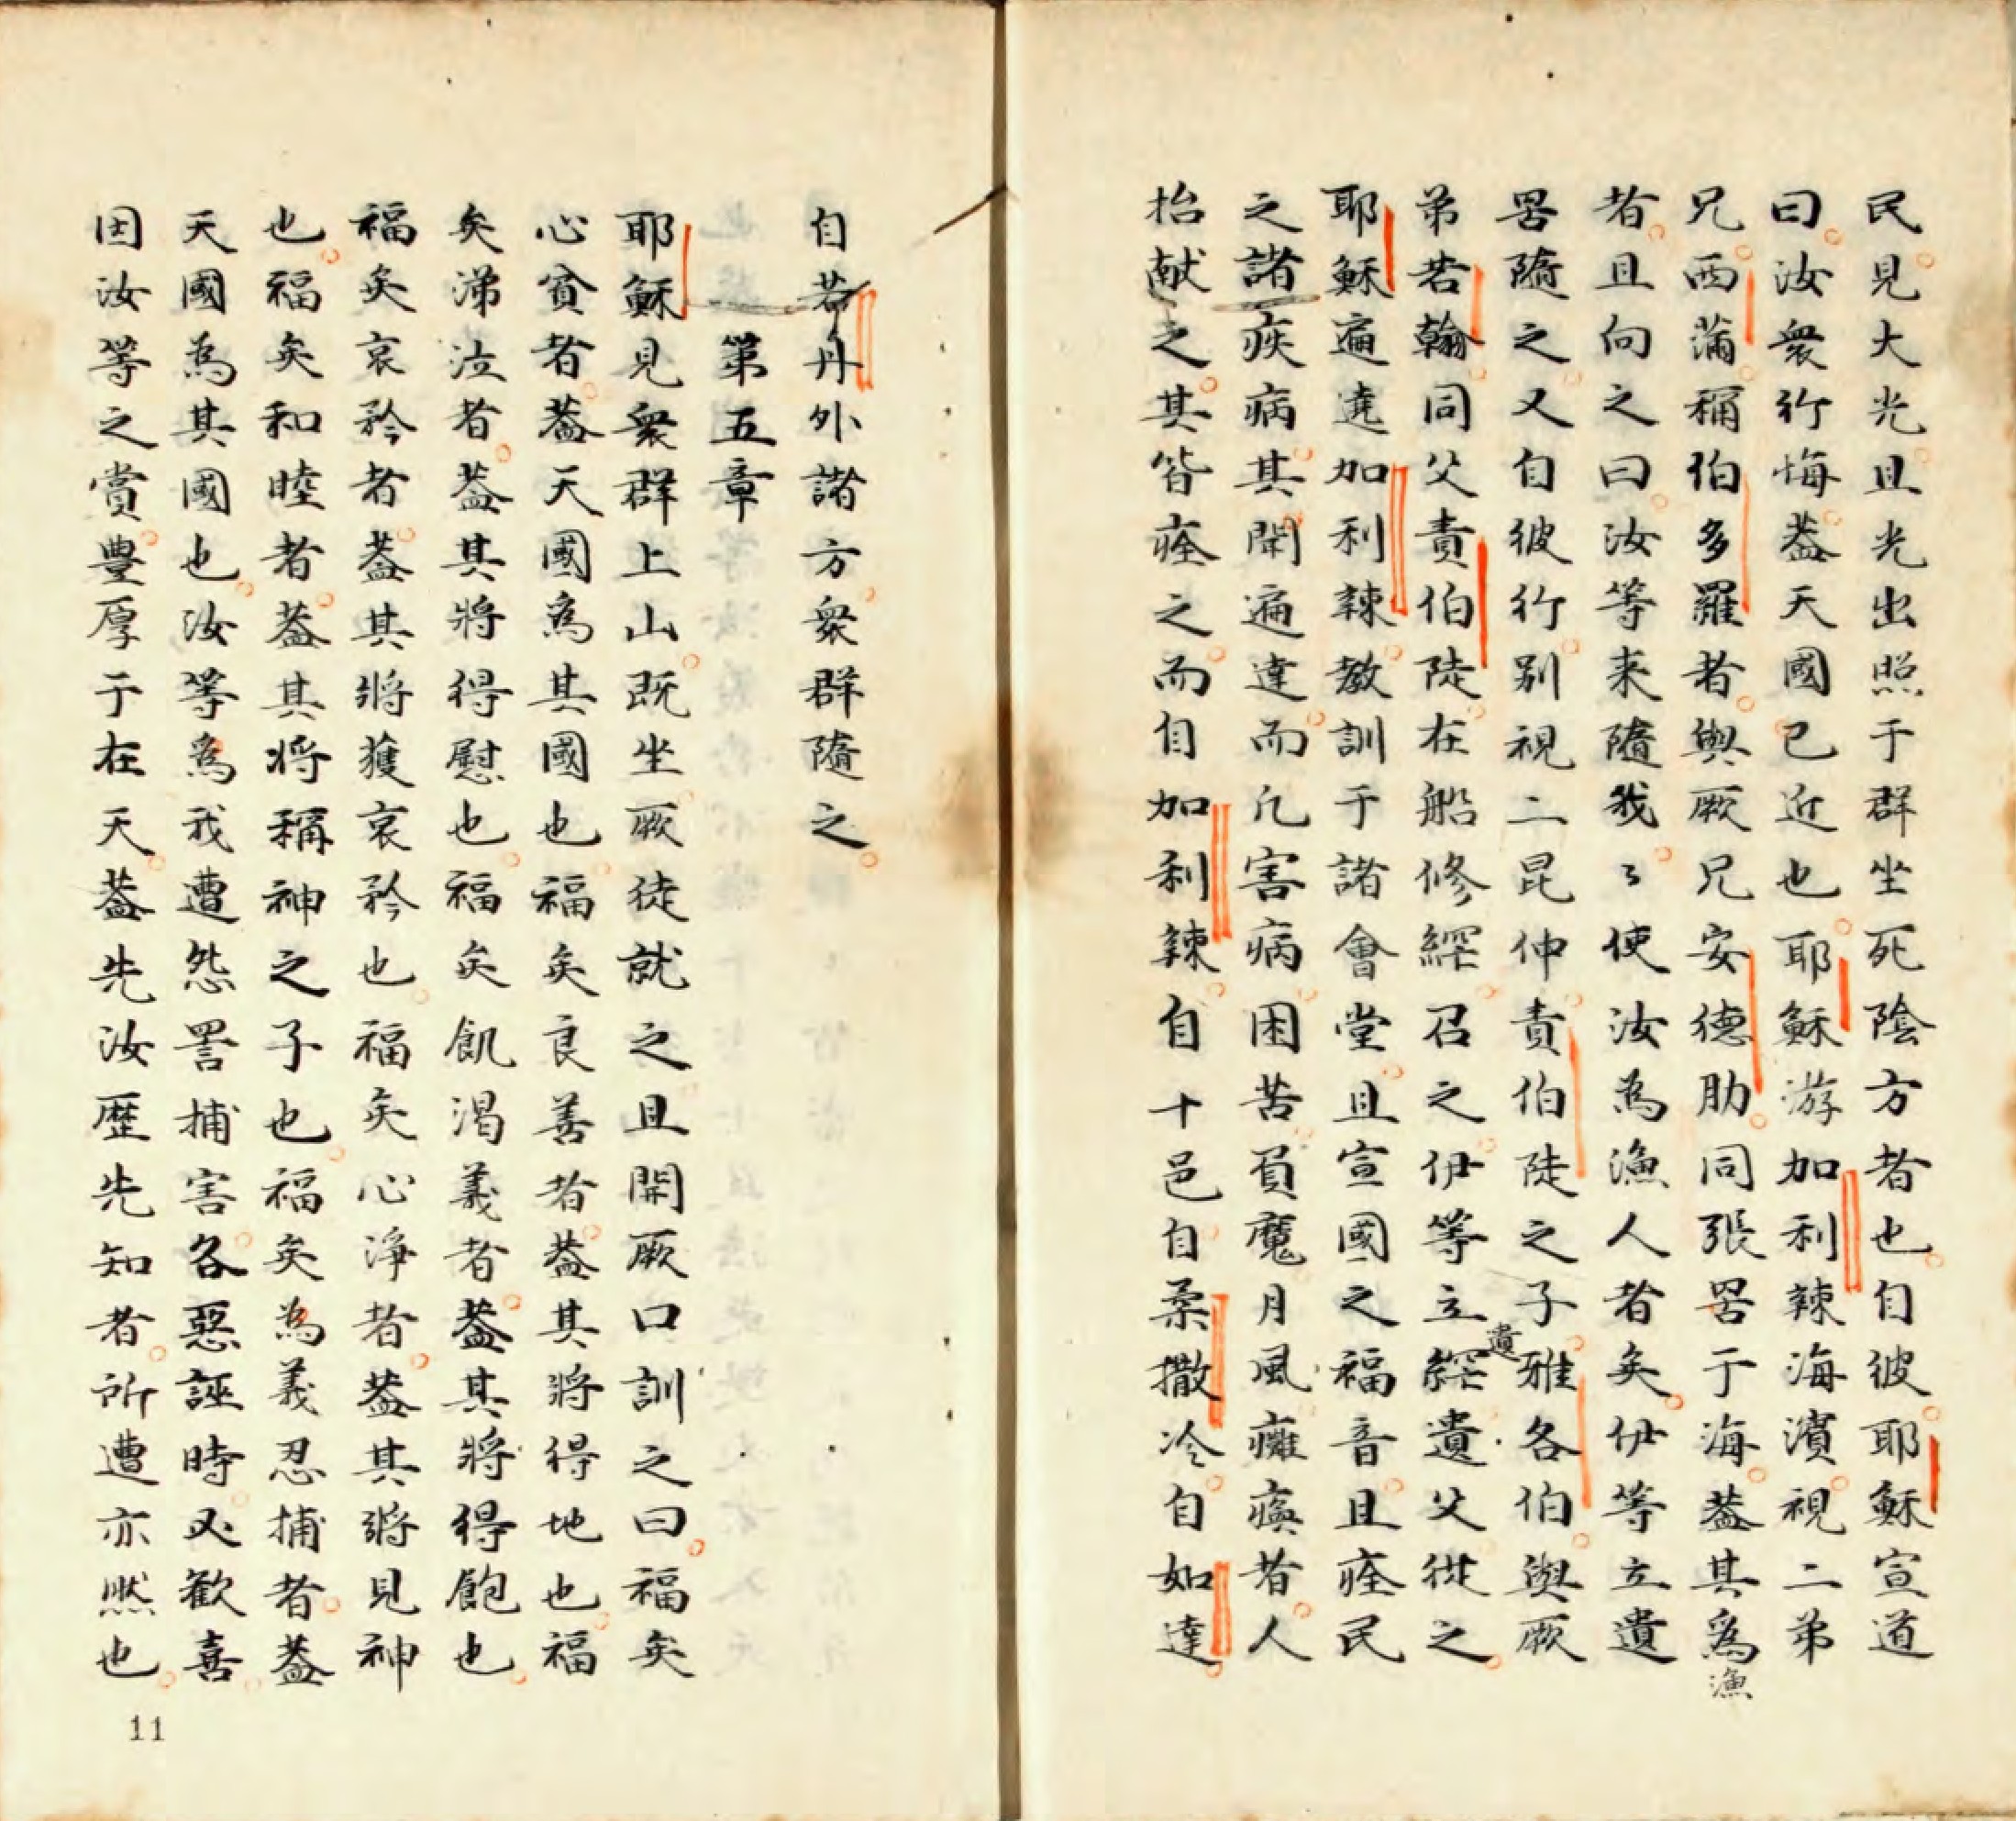 民見大光且光出照于群坐死陰方者也自彼耶穌宣道
曰汝衆行悔葢天國已近也耶穌游加利辣海濱視二弟
兄西蒲稱伯多羅者與厥兄安德肋同張罟于海葢其爲漁
者且向之曰汝等来隨我〻使汝為漁人者矣伊等立遺
罟隨之又自彼行别視二昆仲責伯陡之子雅各伯與厥
弟若翰同父責伯陡在船修網召之伊等立遺網遺父從之
耶穌遍遶加利辣教訓于諸會堂且宣國之福音且痊民
之諸疾病其聞遍達而凡害病困苦負魔月風癱瘓者人
抬献之其皆痊之而自加利辣自十邑自柔撒冷自如達
自若丹外諸方衆群隨之
第五章
耶穌見衆群上山既坐厥徒就之且開厥口訓之曰福矣
心貧者葢天國爲其國也福矣良善者葢其將得地也福
矣涕泣者葢其將得慰也福矣飢渴義者葢其將得飽也
福矣哀矜者葢其將獲哀矜也福矣心淨者葢其將見神
也福矣和睦者葢其將稱神之子也福矣為義忍捕者葢
天國為其國也汝等為我遭怨詈捕害各惡誣時又歡喜
因汝等之賞豊厚于在天葢先汝歷先知者所遭亦然也
11